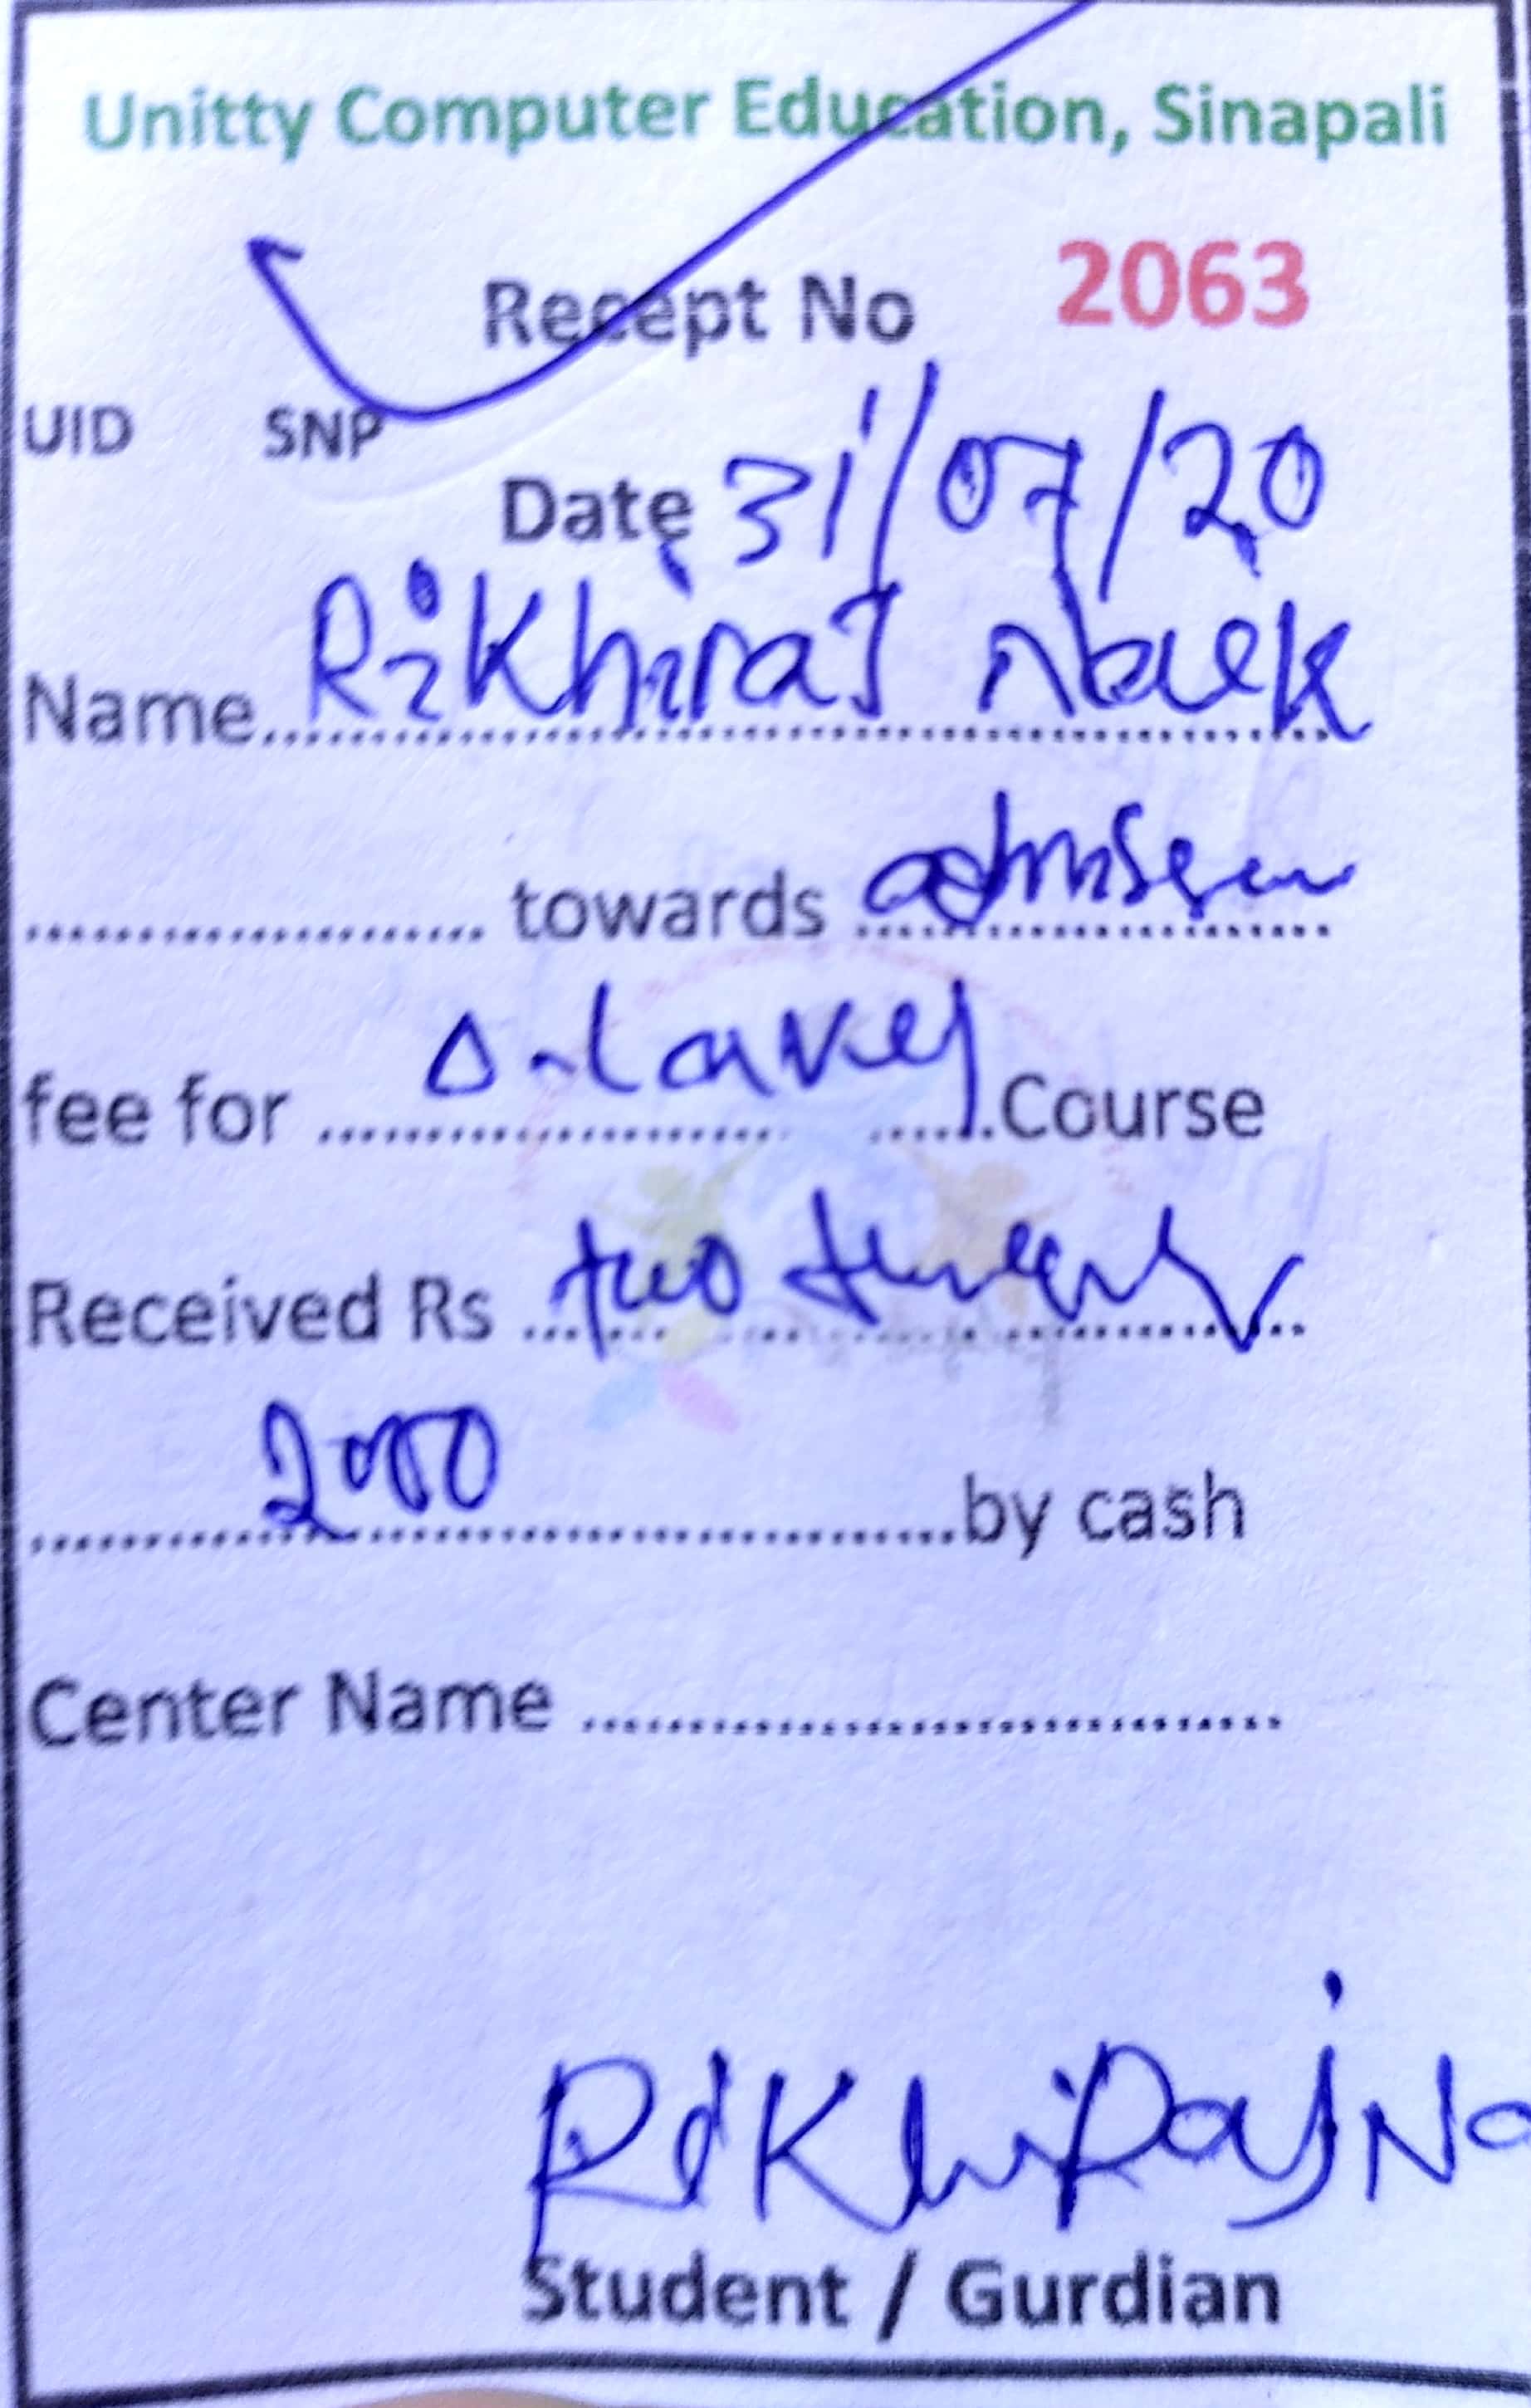 Unitty Computer Education, Sinapali
Recept No 2063
UID SNP
Date 31/07/20
Name Rikhiraj Naek
.................... towards admission
fee for .................... Course
Received Rs two
2000 ........................by cash
Center Name ................................
RiKhiRaj Na
Student / Gurdian